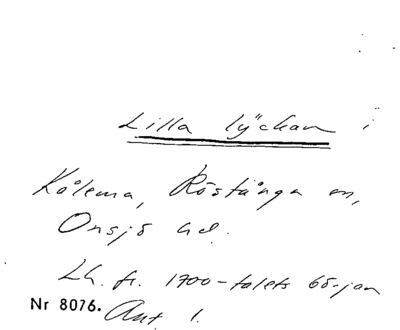 Lilla lyckan i
Kolema, Röstånga sn,
Onsjö hd.
Lh. fr. 1700-talets början
Nr 8076. Ant. 1.